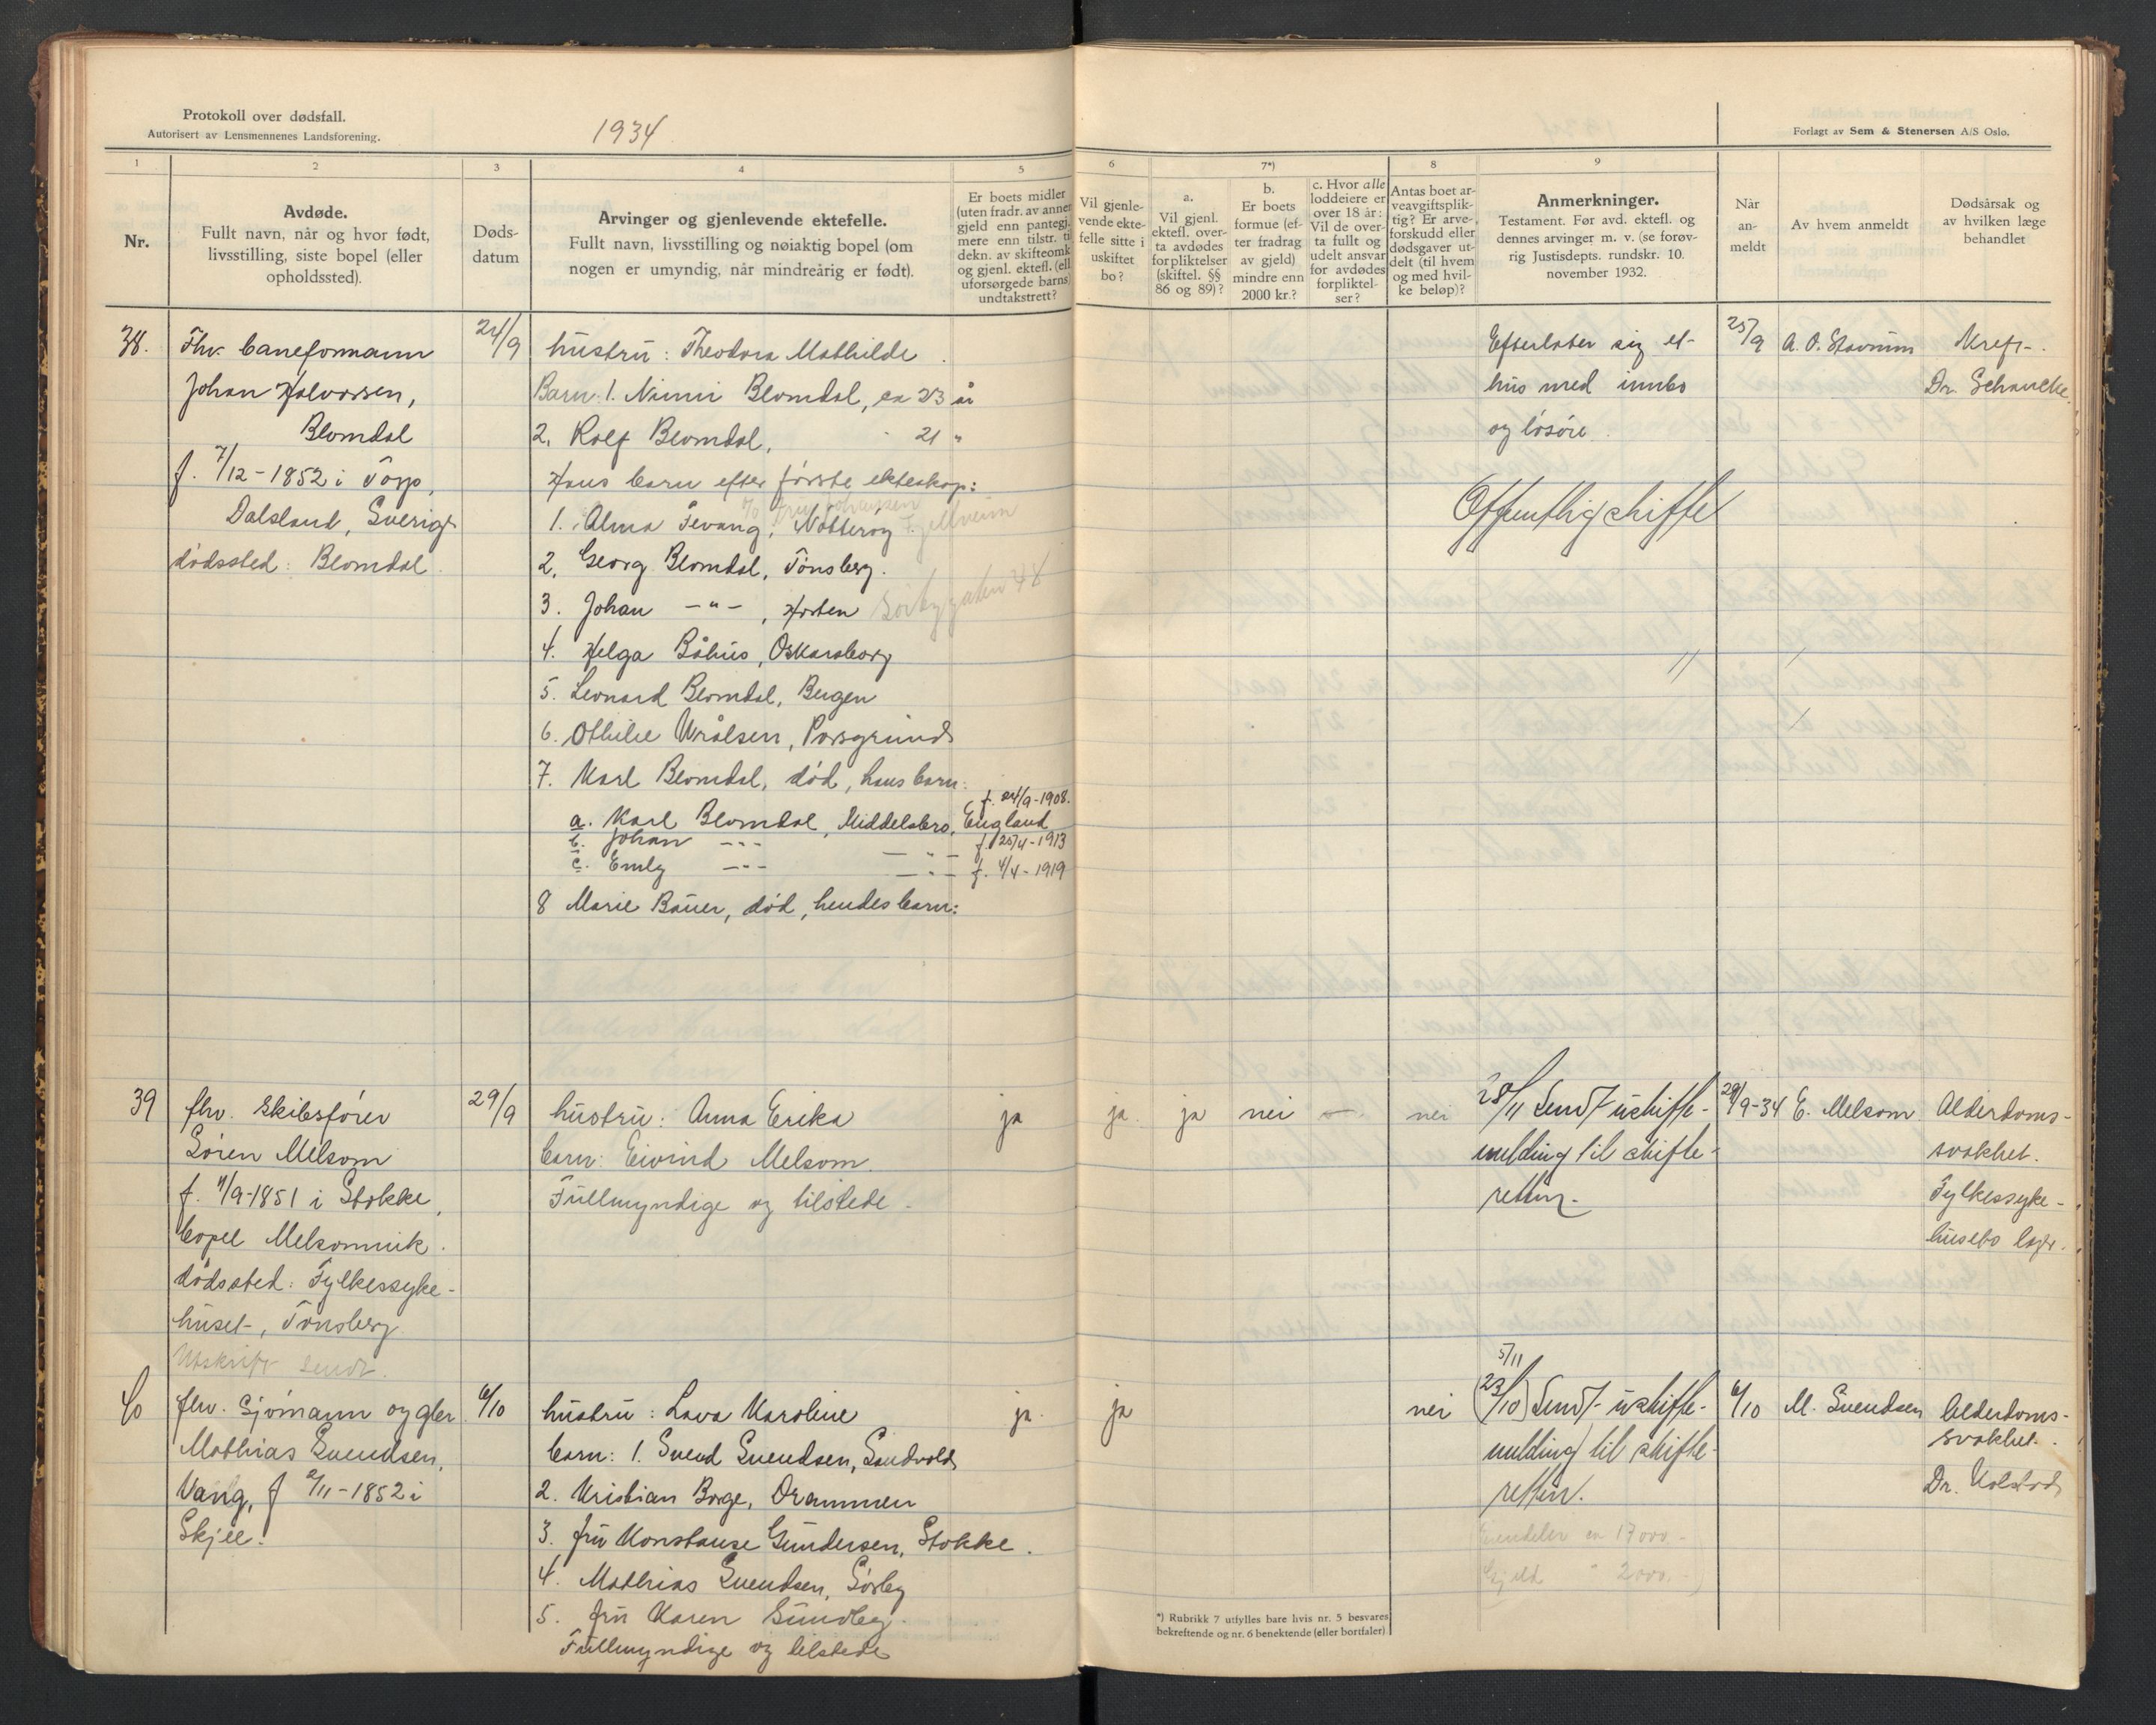 Protokoll over dødsfall.
Autorisert av Lensmennenes Landsforening.
1934
Forlagt av Sem & Stenersen A/S Oslo.
1
2
3
4
5
6
7*)
8
9
Nr.
Avdøde.
Fullt navn, når og hvor født,
livsstilling, siste bopel (eller
opholdssted).
Døds-
datum
Arvinger og gjenlevende ektefelle.
Fullt navn, livsstilling og nøiaktig bopel (om
nogen er umyndig, når mindreårig er født).
Er boets midler
(uten fradr. av annen
gjeld enn pantegj.
mere enn tilstr. ti
dekn. av skifteomk
og gjenl. ektefl. (ell
uforsørgede barns)
undtakstrett?
Vil gjenle-
vende ekte-
felle sitte i
uskiftet
bo?
a.
Vil gjenl.
ektefl. over-
ta avdødes
forpliktelser
(skiftel. §§
86 og 89)?
b.
Er boets
formue (ef-
ter fradrag
av gjeld)
mindre enn
2000 kr.?
c. Hvor alle
loddeiere er
over 18 år:
Vil de over-
ta fullt og
udelt ansvar
for avdødes
forpliktel-
ser?
Antas boet ar-
veavgiftsplik-
tig? Er arve-
forskudd eller
dødsgaver ut-
delt (til hvem
og med hvil-
ke beløp)?
Anmerkninger.
Testament. Før avd. ektefl. og
dennes arvinger m. v. (se forøv-
rig Justisdepts. rundskr. 10.
november 1932.
Når
an-
meldt
Av hvem anmeldt
Dødsårsak og
av hvilken læge
behandlet
38.
Fhv. baneformann
Johan Halvorsen,
Blomdal
f. 7/12-1852 i Torp,
Dalsland, Sverige
dødssted: Blomdal.
24/9
hustru: Theodora Mathilde.
Barn: 1. Nimi Blomdal, ca 23 år
2. Rolf Blomdal, " 21 "
Hans barn efter første ekteskap:
fru Johansen
1. Alma Tevang, Nøtterøy. Fjellheim
2. Georg Blomdal, Tønsberg.
3. Johan -"-, Horten 48
4. Helga Båhus, Oskarsborg
5. Leonard Blomdal, Bergen
6. Othilie Urålsen, Porsgrund
7. Karl Blomdal, død, hans barn:
f. 24/9-1908.
a. Karl Blomdal, Middelsbro, England
b. Johan -"- -"- f. 25/4-1913
c. Emly -"- -"- f. 4/4-1919
8 Marie Bauer, død, hendes barn:
Efterlater sig et
hus med innbo
og løsøre.
Offentlig skifte
25/9
A. O. Stavnum
Kreft.
Dr. Schancke.
39
fhv. skibsfører
Søren Melsom
f. 11/9-1851 i Stokke,
bopel Melsomvik.
dødssted: Fylkessyke-
huset, Tønsberg
Utskrift sendt.
29/9
hustru: Anna Erika
barn: Eivind Melsom.
Fullmyndige og tilstede.
ja
ja.
ja
nei
—.
nei
28/11 Sendt uskifte-
melding til skifte-
retten.
29/9-34
E. Melsom
Alderdoms-
svakhet.
Fylkessyke-
husets læge.
40
fhv. Sjømann og gbr.
Mathias Svendsen,
Vang, f 2/11-1852 i
Skjee.
6/10
hustru: Lava Karoline
barn: 1. Svend Svendsen, Sandvold
2. Kristian Borge, Drammen
3. fru Konstanse Gundersen, Stokke.
4. Mathias Svendsen, Sørby
5. fru Karen Sundby.
Fullmyndige og tilstede
ja.
ja
nei
5/11
(23/10) Sendt uskifte-
melding til skifte-
retten.
Eiendeler ca 17000.-
Gjeld " 2000.-
6/10
M. Svendsen
Alderdoms-
svakhet.
Dr. Kolstad
*) Rubrikk 7 utfylles bare hvis nr. 5 besvares
bekreftende og nr. 6 benektende (eller bortfaler)